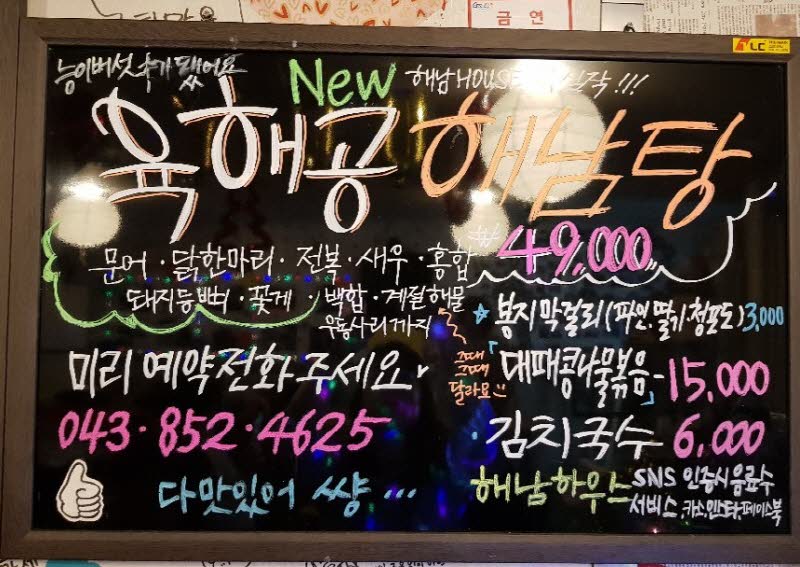 금연
LC
능이버섯 추가 됐어요
New
해남HOUSE !!!
육해공 해남탕
문어·닭한마리·전복·새우·홍합
₩49,000
돼지등뼈·꽃게·백합·계절해물
우동사리까지
그때 그때 달라요
봉지막걸리(파인.딸기.청포도)3,000
미리 예약전화주세요
「대패콩나물볶음」-15,000
043·852·4625
김치국수 6,000
다맛있어 쌰앙...
해남하우스 SNS 인증시음료수
서비스.카스.인스타.페이스북